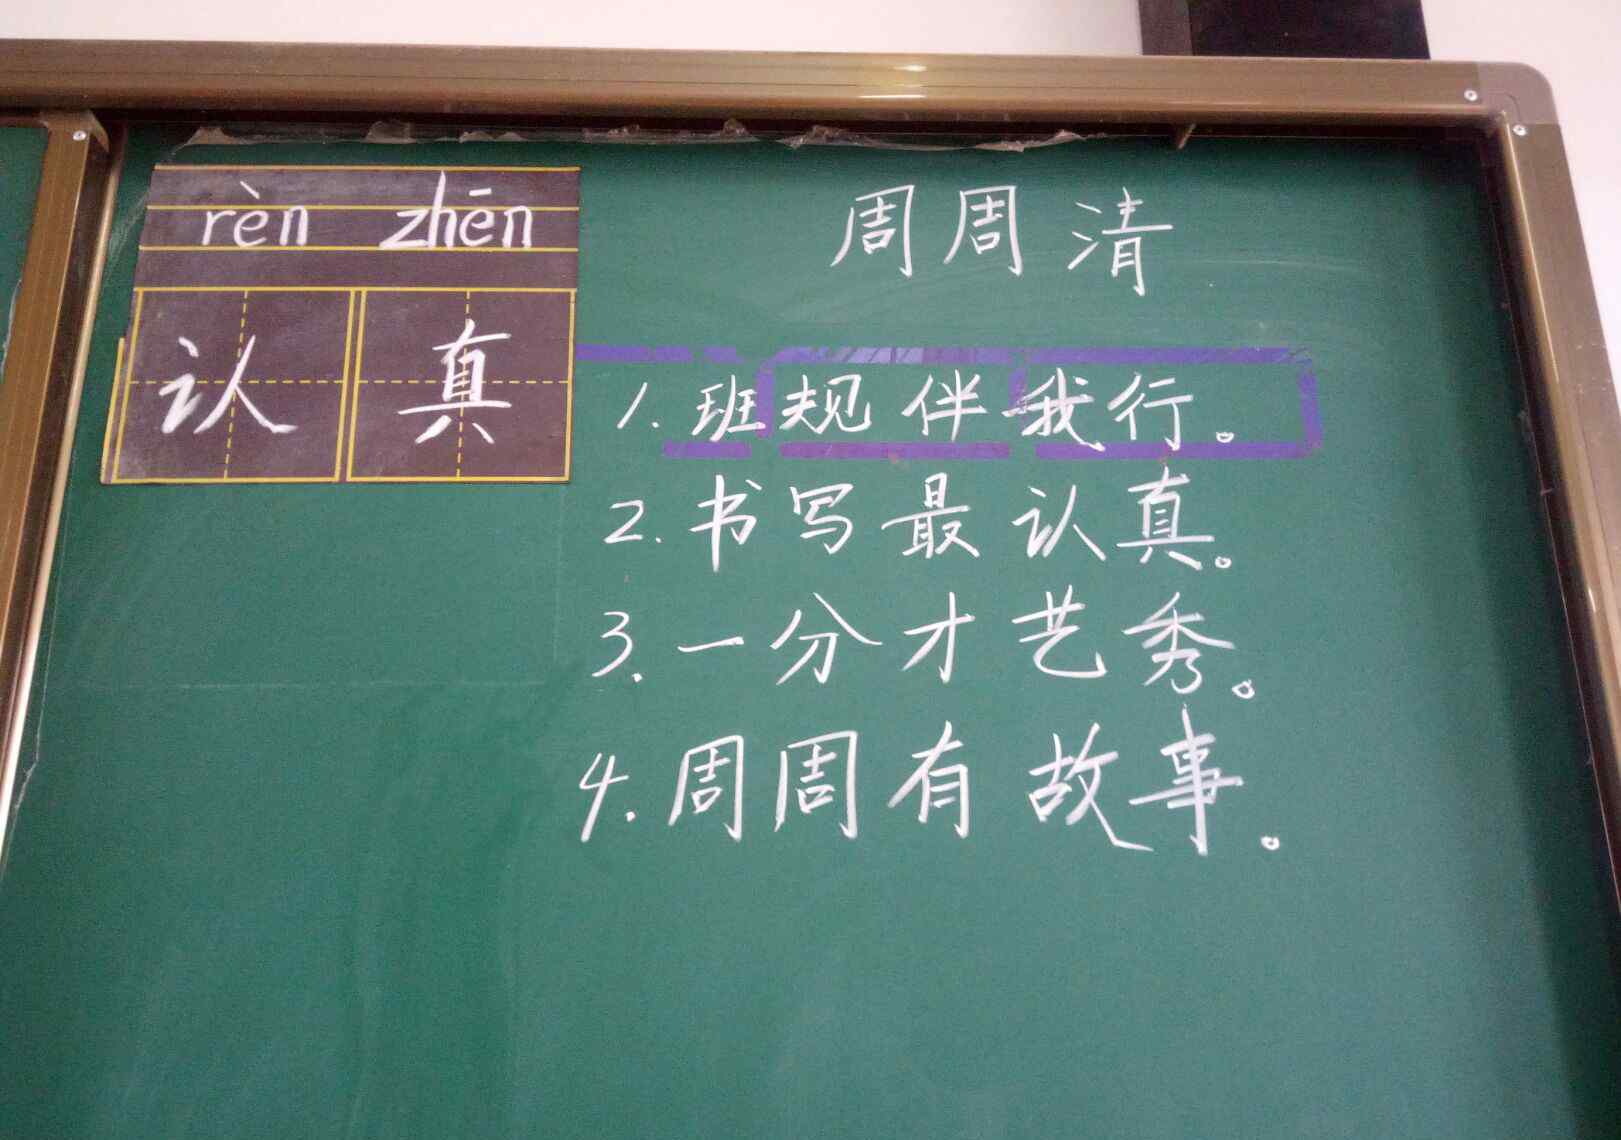 rèn zhēn
认真
周周清
1.班规伴我行。
2.书写最认真。
3.一分才艺秀。
4.周周有故事。